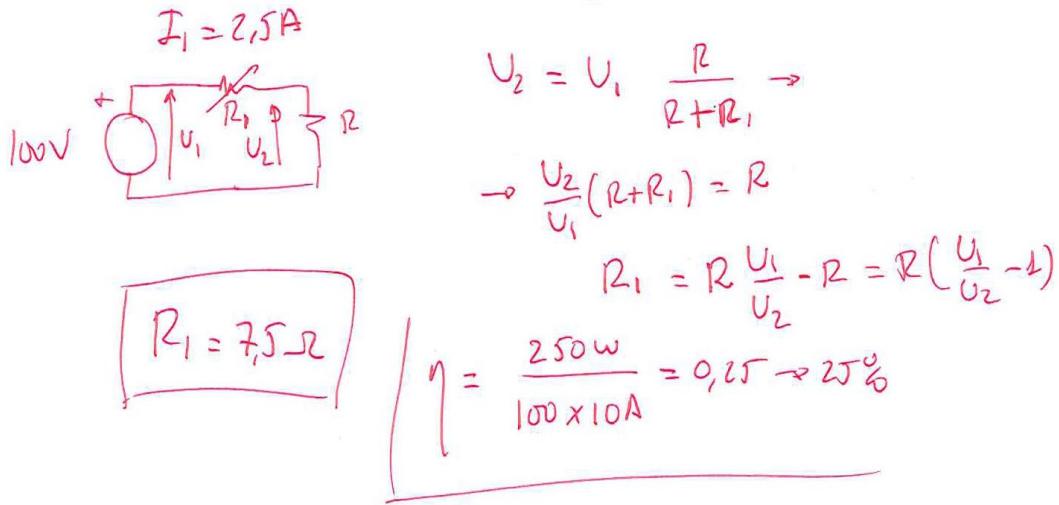 I₁ = 2,5A
+
100V
U₁
R₁
U₂
R
U₂ = U₁ R/(R+R₁) →
→ U₂/U₁ (R+R₁) = R
R₁ = R U₁/U₂ - R = R(U₁/U₂ - 1)
R₁ = 7,5Ω
η = 250W/(100 x 10A) = 0,25 → 25%